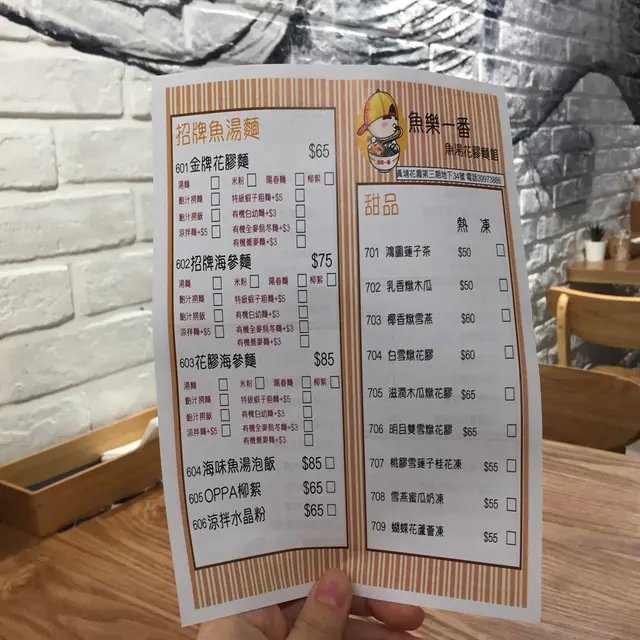 招牌魚湯麵
601金牌花膠麵 $65
湯麵 米粉 陽春麵 柳絮
鮑汁撈麵 特級蝦子粗麵+$5
鮑汁撈飯 有機白幼麵+$3
涼拌麵+$5 有機全麥烏冬麵+$3
有機蕎麥麵+$3
602招牌海參麵 $75
湯麵 米粉 陽春麵 柳絮
鮑汁撈麵 特級蝦子粗麵+$5
鮑汁撈飯 有機白幼麵+$3
涼拌麵+$5 有機全麥烏冬麵+$3
有機蕎麥麵+$3
603花膠海參麵 $85
湯麵 米粉 陽春麵 柳絮
鮑汁撈麵 特級蝦子粗麵+$5
鮑汁撈飯 有機白幼麵+$3
涼拌麵+$5 有機全麥烏冬麵+$3
有機蕎麥麵+$3
604海味魚湯泡飯 $85
605OPPA柳絮 $65
606涼拌水晶粉 $65
魚樂一番
魚湯花膠麵館
黃埔花園第三期地下34號 電話39973886
甜品
熱 凍
701 鴻圖蓮子茶 $50
702 乳香燉木瓜 $50
703 椰香燉雪燕 $60
704 白雪燉花膠 $60
705 滋潤木瓜燉花膠 $65
706 明目雙雪燉花膠 $65
707 桃膠雪蓮子桂花凍 $55
708 雪燕蜜瓜奶凍 $55
709 蝴蝶花蘆薈凍 $55